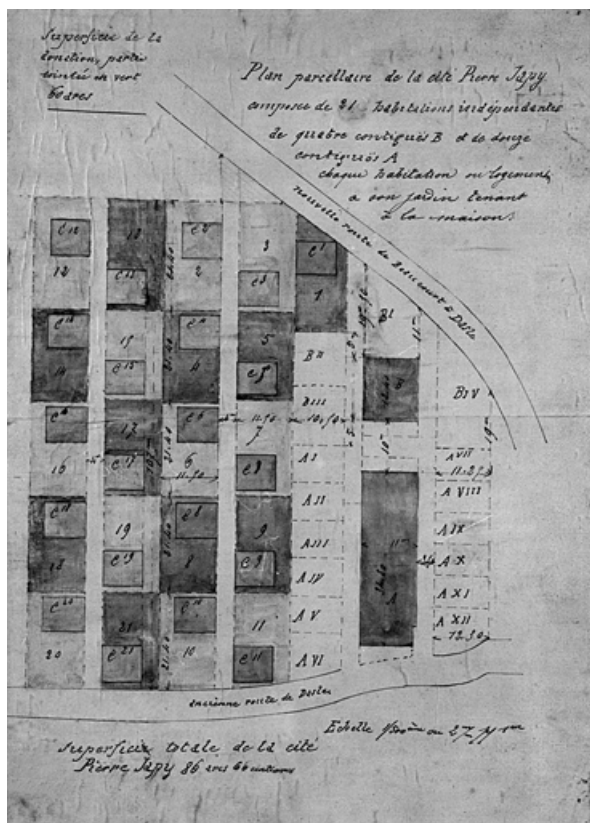 Superficie de la
donation, partie
teintée en vert
60 ares
Plan parcellaire de la cité Pierre Japy
composée de 21 habitations indépendantes
de quatre contiguës B et de douze
contiguës A
chaque habitation ou logement
a son jardin tenant
à la maison
nouvelle route de Beaucourt à Dasle
C12
13
C2
3
C1
12
C13
2
C3
1
BI
15
C4
5
BII
B
BIV
14
C15
4
C5
BIII
17
C6
7
AI
AVII
16
C17
6
AII
AVIII
C18
C8
9
AIII
AIX
19
AIV
AX
18
C19
8
C9
A
AV
AXI
C20
C10
11
AXII
21
AVI
12.30
20
C21
10
C11
ancienne route de Dasle
Echelle
Superficie totale de la cité
Pierre Japy 86 ares 66 centiares